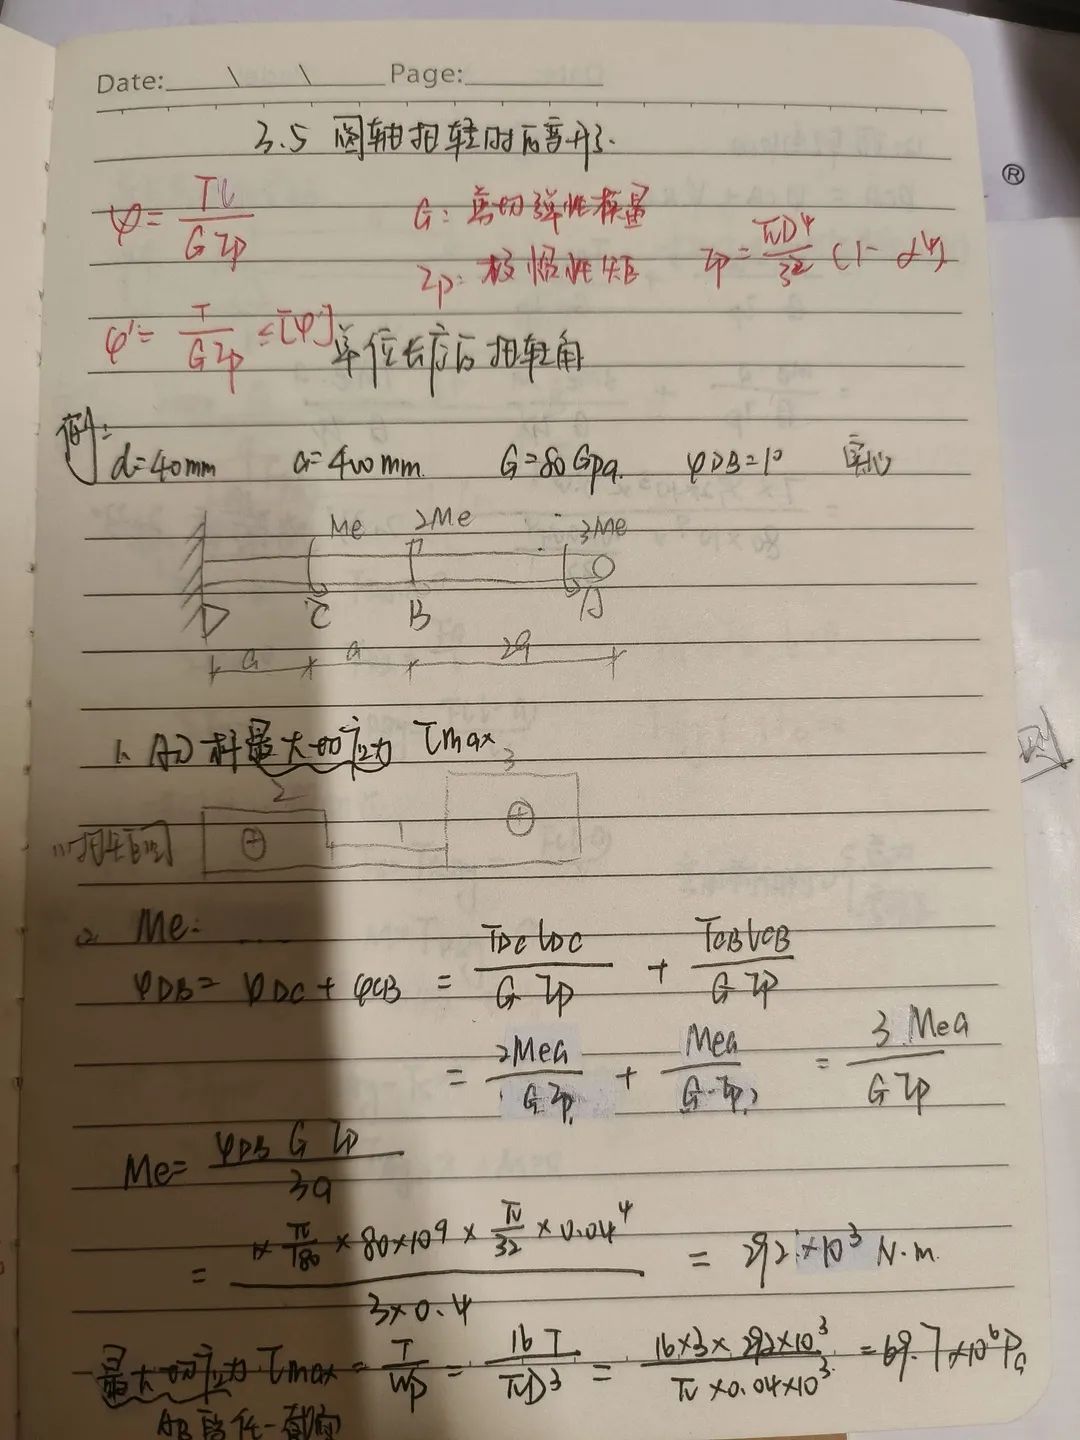 Date: \ \ Page:
3.5 圆轴扭转时的变形.
φ = Tl / G Ip
G: 剪切弹性模量
Ip: 极惯性矩 Ip = πD⁴/32 (1-α⁴)
φ' = T / G Ip ≤ [φ'] 单位长度的扭转角
®
例:
d=40mm a=400mm. G=80Gpa. φDB=1° 实心
Me 2Me 3Me
D C B A
a a 2a
1. AD杆最大切应力 τmax
3
2
1
(1) 扭矩图 ⊕ ⊕
2 Me:
φDB = φDC + φCB = TDC lDC / G Ip + TCB lCB / G Ip
= 2Mea / G Ip + Mea / G·Ip = 3 Mea / G Ip
Me = φDB G Ip / 3a
= 1× π/180 × 80×10⁹ × π/32 × 0.04⁴ / 3×0.4 = 292×10³ N·m.
最大切应力 τmax = T/Wp = 16T / πD³ = 16×3×292×10³ / π×0.04×10³ = 69.7×10⁶ Pa
AB段任一截面